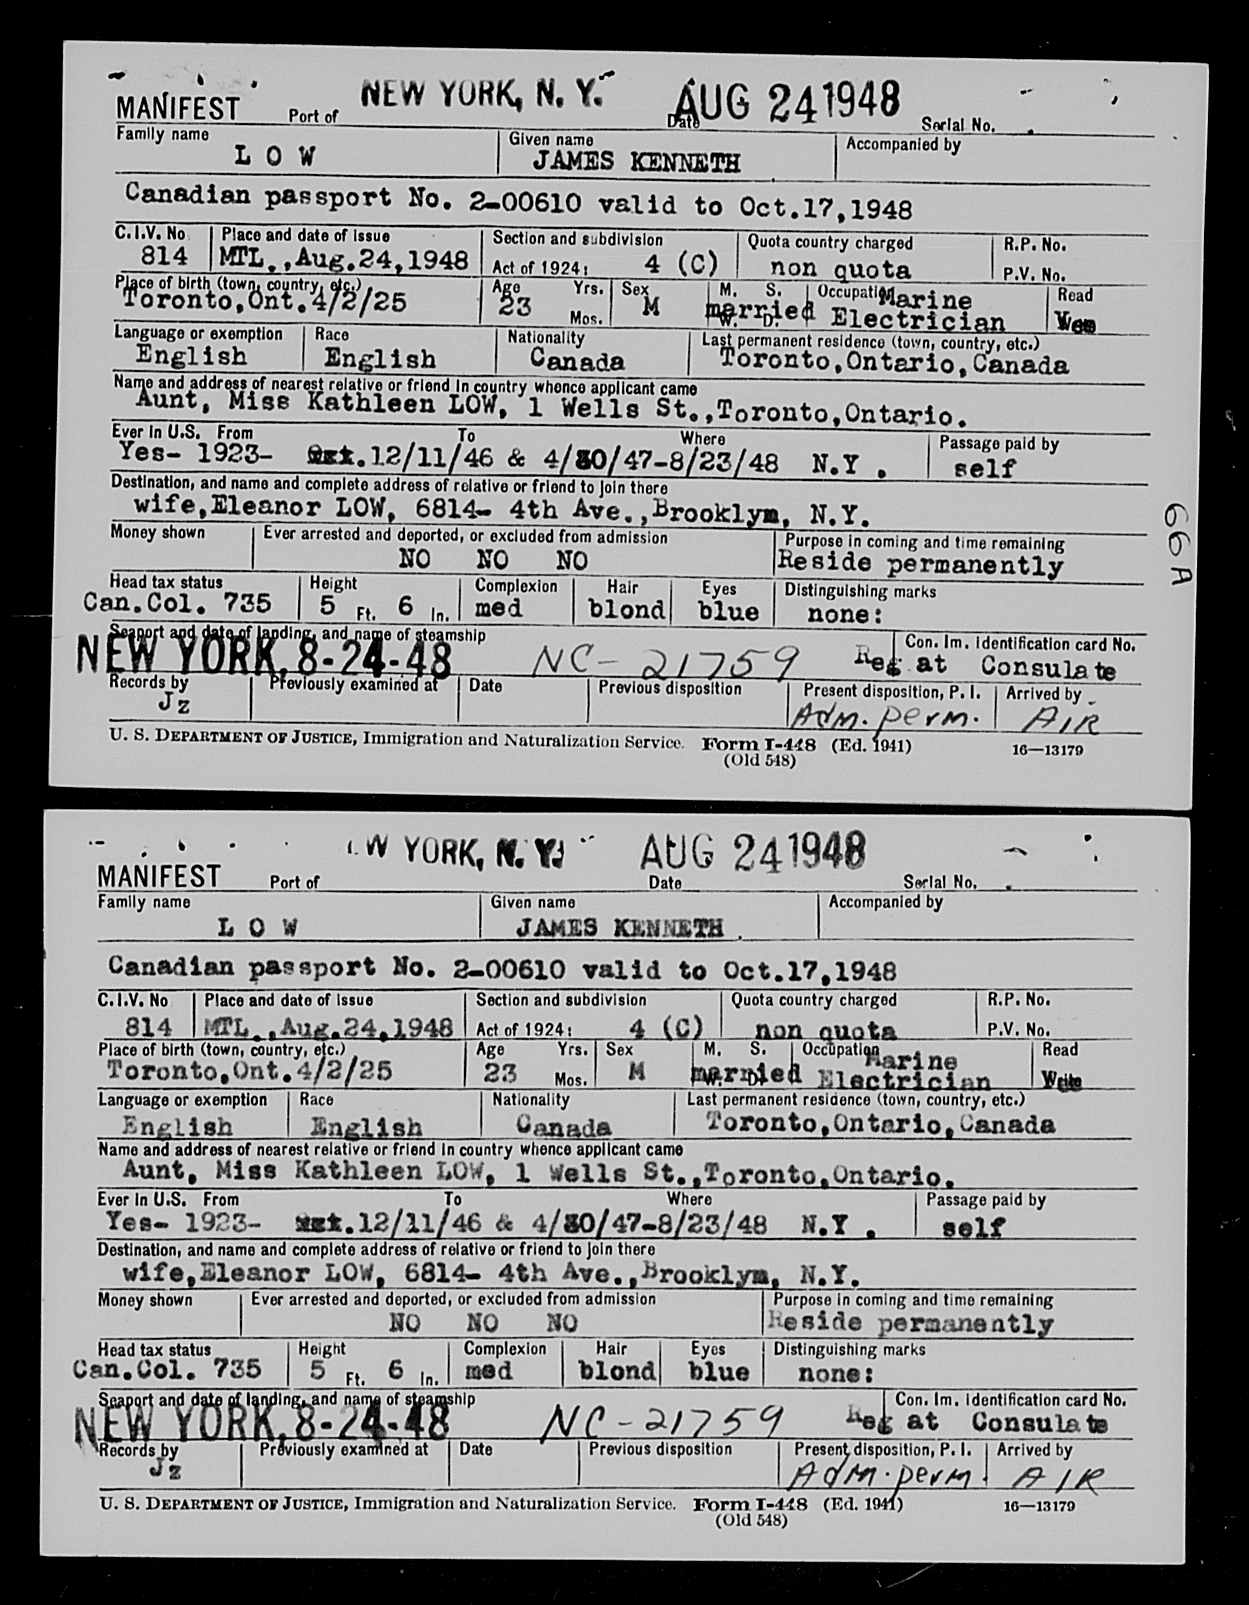 NEW YORK, N. Y. AUG 24 1948
MANIFEST Port of Date Serial No.
Family name Given name Accompanied by
L O W JAMES KENNETH
Canadian passport No. 2-00610 valid to Oct.17,1948
C.I.V. No. Place and date of issue Section and subdivision Quota country charged R.P. No.
814 MTL.,Aug.24,1948 Act of 1924: 4 (C) non quota P.V. No.
Place of birth (town, country, etc.) Age Yrs. Sex M. S. Occupation Read
Toronto,Ont.4/2/25 23 Mos. M married W. D. Marine Electrician Yes
Language or exemption Race Nationality Last permanent residence (town, country, etc.)
English English Canada Toronto,Ontario,Canada
Name and address of nearest relative or friend in country whence applicant came
Aunt, Miss Kathleen LOW, 1 Wells St.,Toronto,Ontario.
Ever in U.S. From To Where Passage paid by
Yes- 1923- 12/11/46 & 4/30/47-8/23/48 N.Y. self
Destination, and name and complete address of relative or friend to join there
wife,Eleanor LOW, 6814- 4th Ave.,Brooklyn, N.Y.
Money shown Ever arrested and deported, or excluded from admission Purpose in coming and time remaining
NO NO NO Reside permanently
Head tax status Height Complexion Hair Eyes Distinguishing marks
Can.Col. 735 5 Ft. 6 In. med blond blue none:
Seaport and date of landing, and name of steamship Con. Im. Identification card No.
NEW YORK, 8-24-48 NC-21759 Reg at Consulate
Records by Previously examined at Date Previous disposition Present disposition, P. I. Arrived by
Jz Adm. perm. AIR
U. S. DEPARTMENT OF JUSTICE, Immigration and Naturalization Service. Form I-448 (Ed. 1941) 16—13179
(Old 548)
66A
W YORK, N. Y. AUG 24 1948
MANIFEST Port of Date Serial No.
Family name Given name Accompanied by
L O W JAMES KENNETH
Canadian passport No. 2-00610 valid to Oct.17,1948
C.I.V. No Place and date of issue Section and subdivision Quota country charged R.P. No.
814 MTL.,Aug.24,1948 Act of 1924: 4 (C) non quota P.V. No.
Place of birth (town, country, etc.) Age Yrs. Sex M. S. Occupation Read
Toronto,Ont.4/2/25 23 Mos. M married W. D. Marine Electrician Write
Language or exemption Race Nationality Last permanent residence (town, country, etc.)
English English Canada Toronto,Ontario,Canada
Name and address of nearest relative or friend in country whence applicant came
Aunt, Miss Kathleen LOW, 1 Wells St.,Toronto,Ontario.
Ever in U.S. From To Where Passage paid by
Yes- 1923- 12/11/46 & 4/30/47-8/23/48 N.Y. self
Destination, and name and complete address of relative or friend to join there
wife,Eleanor LOW, 6814- 4th Ave.,Brooklyn, N.Y.
Money shown Ever arrested and deported, or excluded from admission Purpose in coming and time remaining
NO NO NO Reside permanently
Head tax status Height Complexion Hair Eyes Distinguishing marks
Can.Col. 735 5 Ft. 6 In. med blond blue none:
Seaport and date of landing, and name of steamship Con. Im. Identification card No.
NEW YORK, 8-24-48 NC-21759 Reg at Consulate
Records by Previously examined at Date Previous disposition Present disposition, P. I. Arrived by
Jz Adm. perm. AIR
U. S. DEPARTMENT OF JUSTICE, Immigration and Naturalization Service. Form I-448 (Ed. 1941) 16—13179
(Old 548)